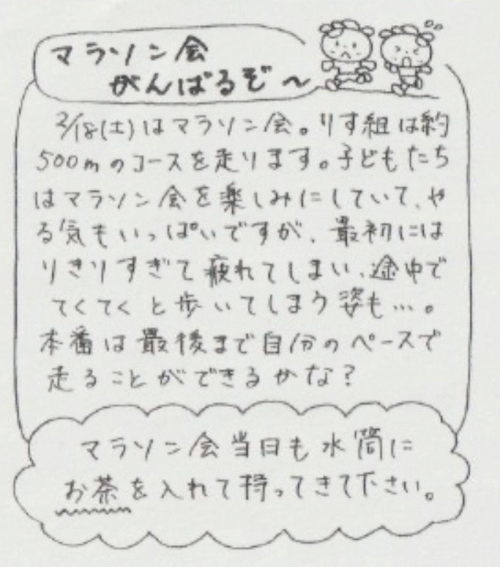 マラソン会
がんばるぞ〜
2/18(土)はマラソン会。りす組は約
500mのコースを走ります。子どもたち
はマラソン会を楽しみにしていて、や
る気もいっぱいですが、最初には
りきりすぎて疲れてしまい、途中で
てくてくと歩いてしまう姿も…。
本番は最後まで自分のペースで
走ることができるかな？
マラソン会当日も水筒に
お茶を入れて持ってきて下さい。